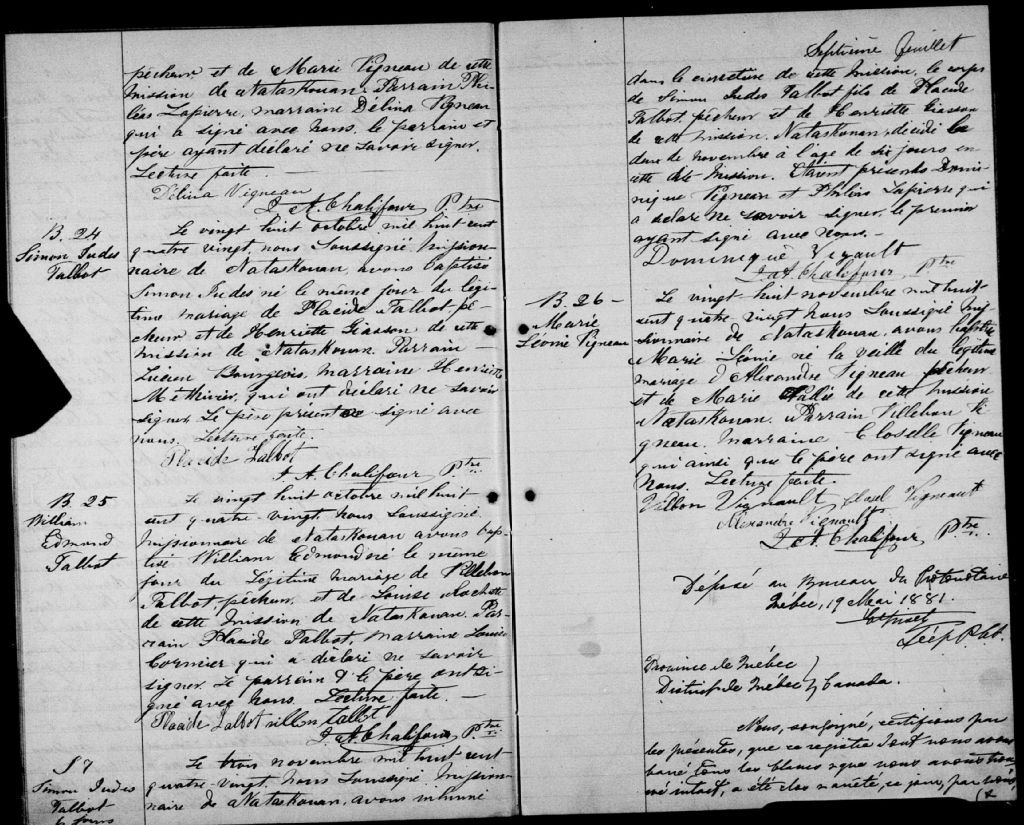 pêcheur et de Marie Vigneau de cette
mission de Nataskouan. Parrain Phi-
léas Lapierre, marraine Délina Vigneau
qui a signé avec nous, le parrain et
père ayant déclaré ne savoir signer.
Lecture faite. —
Délina Vigneau
J. A. Chalifour Ptre
B. 24
Simon Judes
Talbot
Le vingt huit octobre mil huit cent
quatre vingt, nous soussigné mission-
naire de Nataskouan, avons baptisé
Simon Judes né le même jour du légi-
time mariage de Placide Talbot, pê-
cheur et de Henriette Giasson de cette
mission de Nataskouan. Parrain —
Lucien Bourgeois, marraine Henriette
Méthivier, qui ont déclaré ne savoir
signer. Le père présent a signé avec
nous. Lecture faite.
Placide Talbot
J. A. Chalifour Ptre
B. 25
William
Edmond
Talbot
Le vingt huit octobre mil huit
cent quatre-vingt, nous soussigné
missionnaire de Nataskouan avons bap-
tisé William Edmond né le même
jour du légitime mariage de Villebon
Talbot, pêcheur, et de Louise Rochette
de cette mission de Nataskouan. Par-
rain Placide Talbot, marraine Louise
Cormier qui a déclaré ne savoir
signer. Le parrain & le père ont si-
gné avec nous. Lecture faite. —
Placide Talbot villbon talbot
J. A. Chalifour Ptre
S 7
Simon Judes
Talbot
6 jours
Le trois novembre mil huit cent
quatre-vingt, nous soussigné mission-
naire de Nataskouan, avons inhumé
Septième feuillet
dans le cimetière de cette mission, le corps
de Simon Judes Talbot fils de Placide
Talbot, pêcheur et de Henriette Giasson
de cette mission. Nataskouan, décédé le
deux de novembre à l'age de six jours en
cette dite mission. Etaient présents Domi-
nique Vigneau et Philéas Lapierre qui
a déclaré ne savoir signer, le premier
ayant signé avec nous. —
Dominique Vigault
J. A. Chalifour Ptre
B. 26 —
Marie
Léonie Vigneau
Le vingt huit novembre mil huit
cent quatre vingt nous soussigné mis-
sionnaire de Nataskouan, avons baptisé
Marie Léonie né la veille du légitime
mariage d'Alexandre Vigneau pêcheur
et de Marie de cette mission
Nataskouan. Parrain Villebon Vi-
gneau. Marraine Closelle Vigneau
qui ainsi que le père ont signé avec
nous. Lecture faite.
Vilbon Vignault closel Vigneault
Alexandre Vignault
J. A. Chalifour Ptre.
Déposé au Bureau du Protonotaire
Québec, 19 Mai 1881.
Province de Québec }
District de Québec } Canada.
Nous, soussigné, certifions par
les présentes, que ce registre dont nous avons
barré tous les blancs & que nous avons trou-
vé intact, a été clos & arrêté, ce jour, par nous,